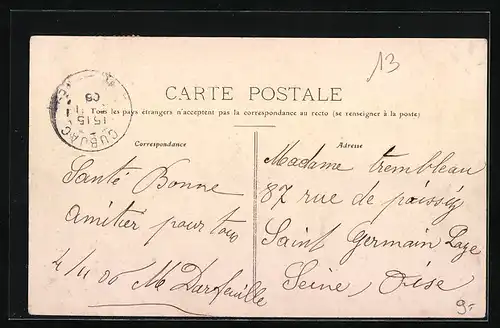 13
CARTE POSTALE
Tous les pays étrangers n'acceptent pas la correspondance au recto (se renseigner à la poste)
CUBJAC
15 15
Correspondance
Adresse
Santé Bonne
amitier pour tous
4/11 06 M Darfeuille
Madame trembleau
87 rue de poissey
Saint Germain Laye
Seine, Oise
9-